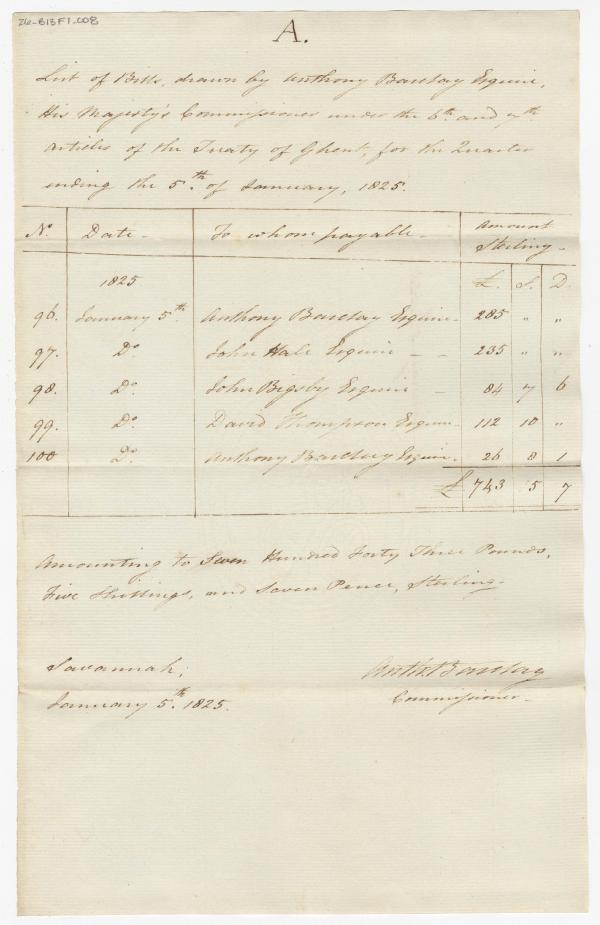 26-B13F1-008
A.
List of Bills, drawn by Anthony Barclay Esquire,
His Majesty's Commissioner under the 6th. and 7th
Articles of the Treaty of Ghent, for the Quarter
ending the 5th. of January, 1825.
No. Date - To whom payable - Amount Sterling -
1825 £. S. D.
96. January 5th. Anthony Barclay Esquire - 285 " "
97. Do John Hale Esquire - - 235 " "
98. Do John Bigsby Esquire - 84 7 6
99. Do David Thompson Esquire - 112 10 "
100 Do Anthony Barclay Esquire - 26 8 1
£ 743 5 7
Amounting to Seven Hundred Forty Three Pounds,
Five Shillings, and Seven Pence, Sterling -
Savannah; Anth: Barclay
January 5th. 1825. Commissioner -